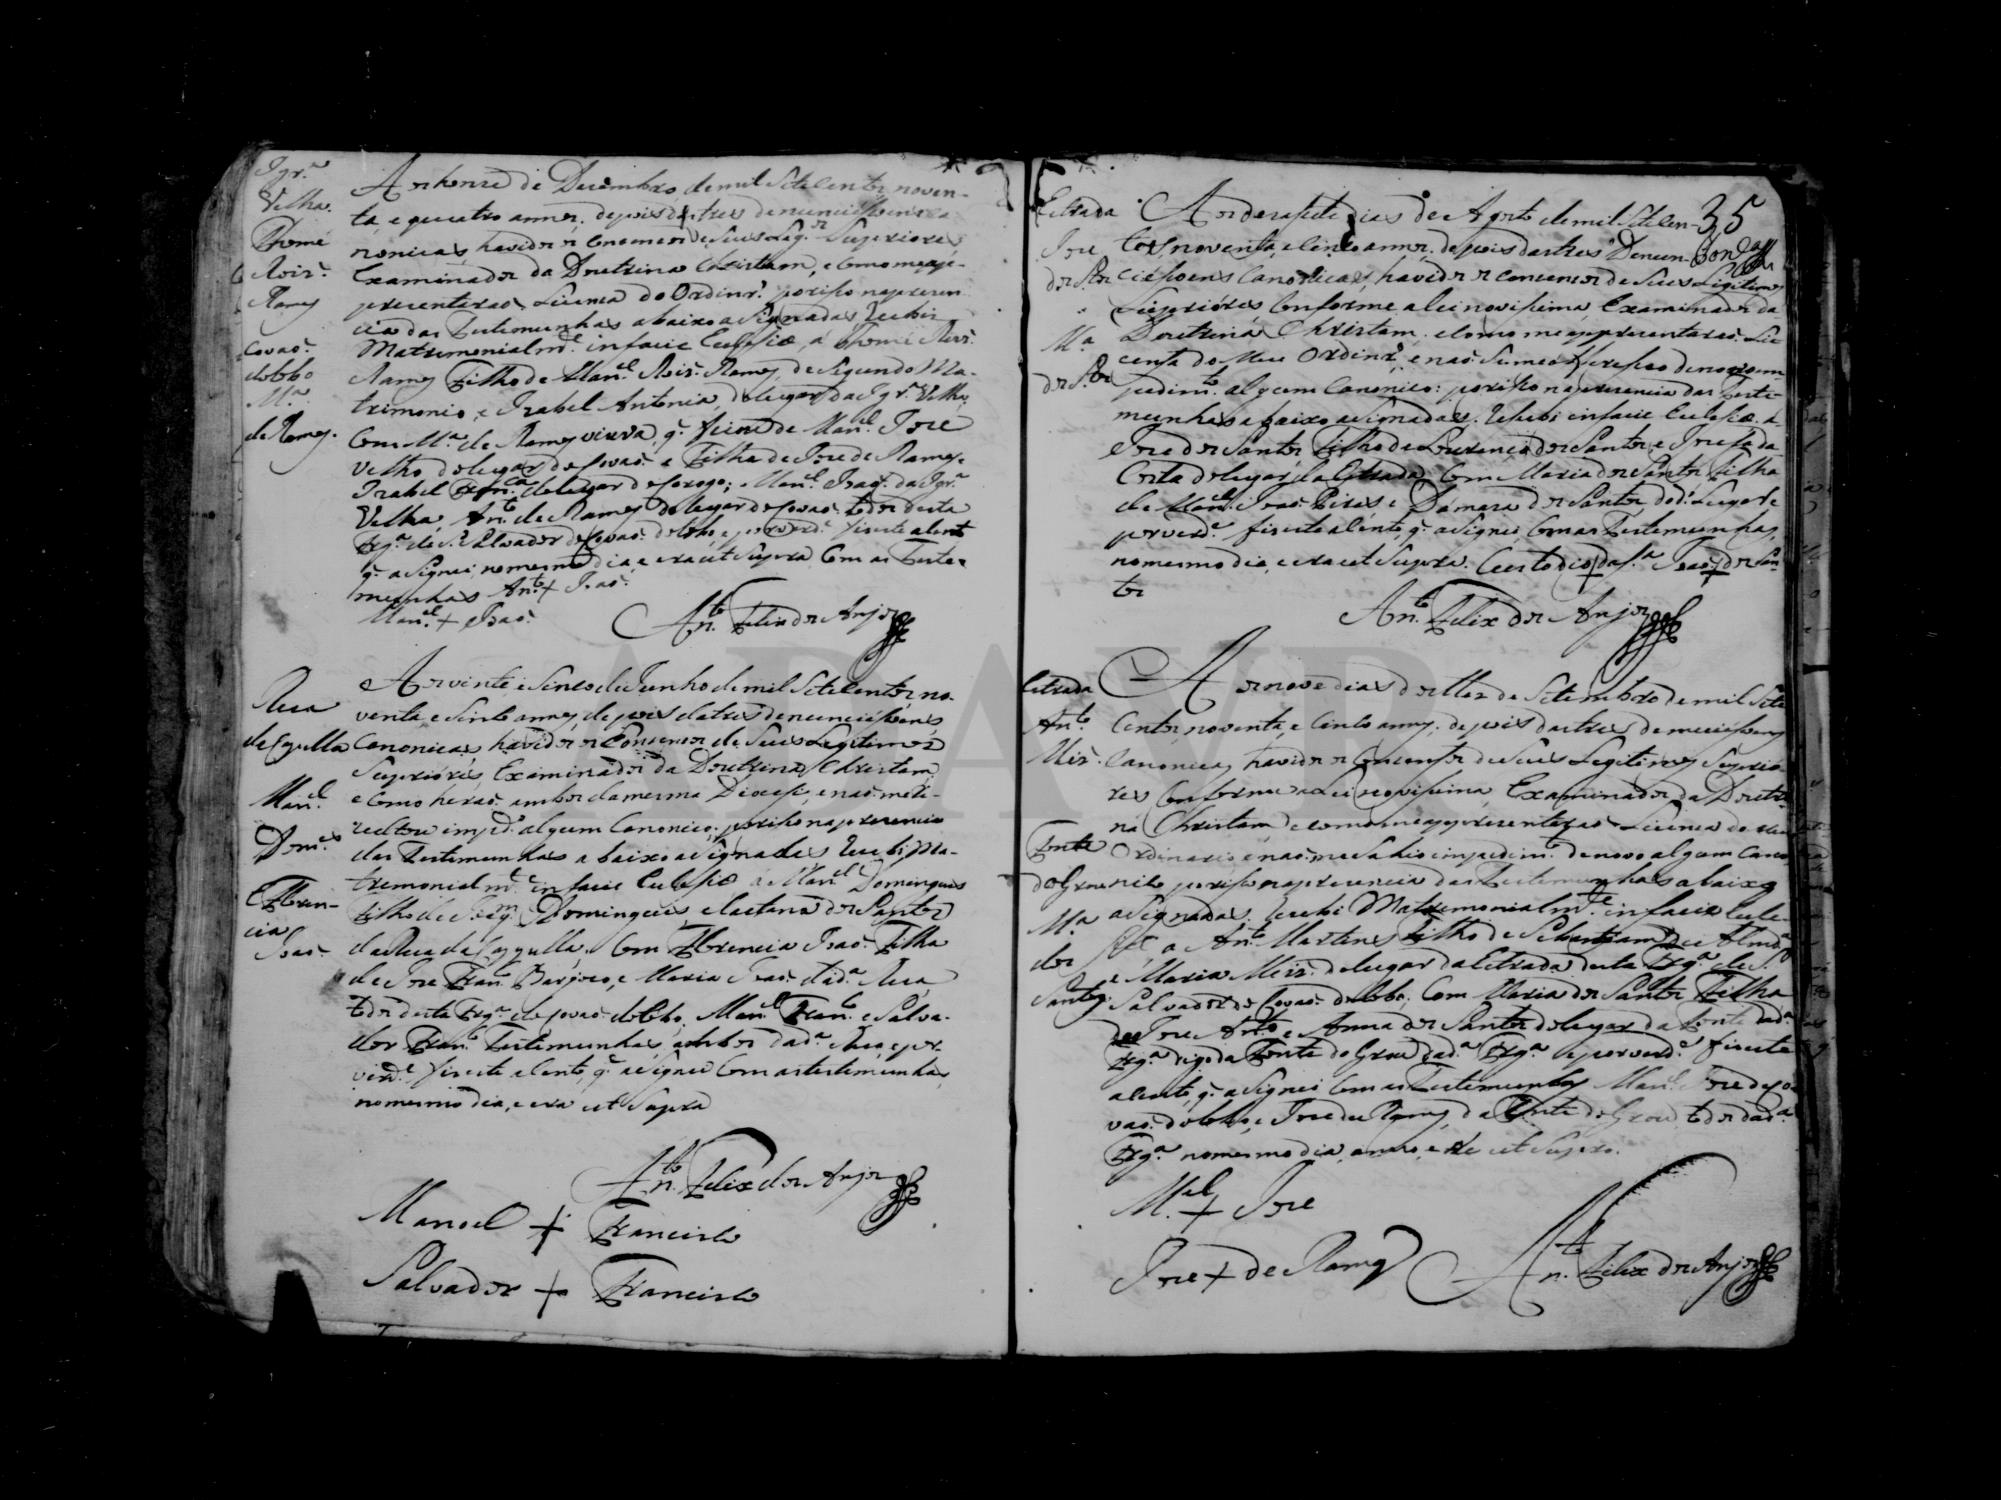 Igr.ª
Velha.
Thomé
Rois.
Ramos
Covaõ.
do Lobo
M.ª
de Ramos.
Aos honze de Dezembro de mil Setecentos noven-
ta, e quatro annos, depois das tres denunciaçoens Ca
nonicas, havidos os Concensos de Seus Leg.os Superiores
Examinados da Doutrina Christam, e como me a-
prezentarao Licença do Ordin.º porisso na prezen
cia das Testemunhas abaixo aSignadas Recebi
Matrimonialm.te in facie Ecclesiæ, a Thome Rois.
Ramos Filho de Man.el Rois. Ramos de Segundo Ma-
trimonio, e Izabel Antonia, do lugar da Igr.ª Velha,
Com M.ª de Ramos viuva, q. ficou de Man.el Joze
velho do lugar de Covaõ. e Filha de Joze de Ramos
Izabel do lugar de Man.el Joaõ. da Igr.ª
Velha, An.to de Ramos do lugar de Covaõ. todos desta
Frg.ª de S. Salvador de Covaõ. do Lobo, e por verd.e fis este aSento
q. aSignei, no mesmo dia, e era ut Supra Com as Teste-
munhas An.to + Joaõ.
Man.el + Joaõ.
An.to Felix dos Anjos
Rua
da Cogulla
Man.el
Dom.es
Floren-
cia
Joaõ.
Aos vinte e Sinco de Junho de mil Setecentos, no-
venta, e Sinco annos, depois das tres denunciaçoens
Canonicas, havidos os Concensos de Seus Legitimos
Superiores, Examinados da Doutrina Christam,
e Como heraõ. ambos da mesma Diocesi, e naõ. me re-
zultou imped.o algum Canonico; porisso na prezencia
das Testemunhas abaixo aSignadas, Recebi Ma-
tremonialm.te in facie Ecclesiæ a Man.el Domingues
Filho de Joaq.m Domingues, e Caetana dos Santos
da Rua da Cogulla, Com Florencia Joaõ. Filha
de Joze Fran.co e Maria Joaõ. d Rua
todos desta Frg.ª de Covaõ. do Lobo, Man.el Fran.co e Salva-
dor Fran.co Testemunhas, ambos da d.ª Rua, e por
verd.e fis este aSento, q. aSignei Com as testemunhas,
no mesmo dia, e era ut Supra
An.to Felix dos Anjos
Manoel + Francisco
Salvador + Francisco
35
Estrada
Joze
dos S.tos
M.ª
dos S.tos
Aos dezasete dias de Agosto de mil Seteçen-
tos, noventa, e Cinco annos, depois das tres Denun-
ciaçoens Canonicas, havidos os concensos de Seus Legitimos
Superiores Conforme a lei novissima, Examinados da
Doutrina Christam, e como me apprezentaraõ. Li
cença do Meu Ordinr.º e naõ
pedim.to algum Canonico: porisso na prezencia das Teste-
munhas abaixo aSignadas. Recebi in facie Ecclesiæ. a
Joze dos Santos Filho de Lourenço dos Santos, e Jozefa da
Costa do lugar da Estrada, Com Maria dos Santos, Filha
de Man.el Joaõ Pires, e Damara dos Santos do d.º Lugar, e
por verd.e fis este aSento, q. aSignei, Com as Testemunhas,
no mesmo dia, e era ut Supra. Custodio + da S.ª Joaõ + dos San-
tos
An.to Felix dos Anjos
Estrada
An.to
Mis.
Fonte
do Grou
M.ª
dos
Santos
Aos nove dias do Mez de Setembro de mil Sete
Centos, noventa, e Cinco annos. depois das tres denunciaçoens
Canonicas, havidos os Concensos de Seus Legitimos Superio-
res Conforme a Lei novissima, Examinados da Doutri-
na Christam, e como me apprezentaraõ Licença do meu
Ordinario, e naõ. me Sahio impedim.to de novo algum Cano
nico porisso na prezencia das Testemunhas abaixo
aSignadas. Recebi Matremonialm.te in facie Eccle-
siæ, a An.to Martins Filho de Sebastiam de Almd.ª
e Maria Mis. do lugar da Estrada desta Frg.ª de S.
Salvador de Covaõ. do Lobo. Com Maria dos Santos Filha
de Joze An.to e Anna dos Santos do lugar da Fonte da d.ª
Frg.ª digo da Fonte do Grou da d.ª Frg.ª e por verd.e fis este
aSento, q. aSignei Com as Testemunhas Man.el Joze de Co-
vaõ. do Lobo, e Joze de Ramos, da Fonte do Grou todos da d.ª
Frg.ª no mesmo dia, anno, e era ut Supra.
M.el + Joze
Joze + de Ramos
An.to Felix dos Anjos
ADAVR